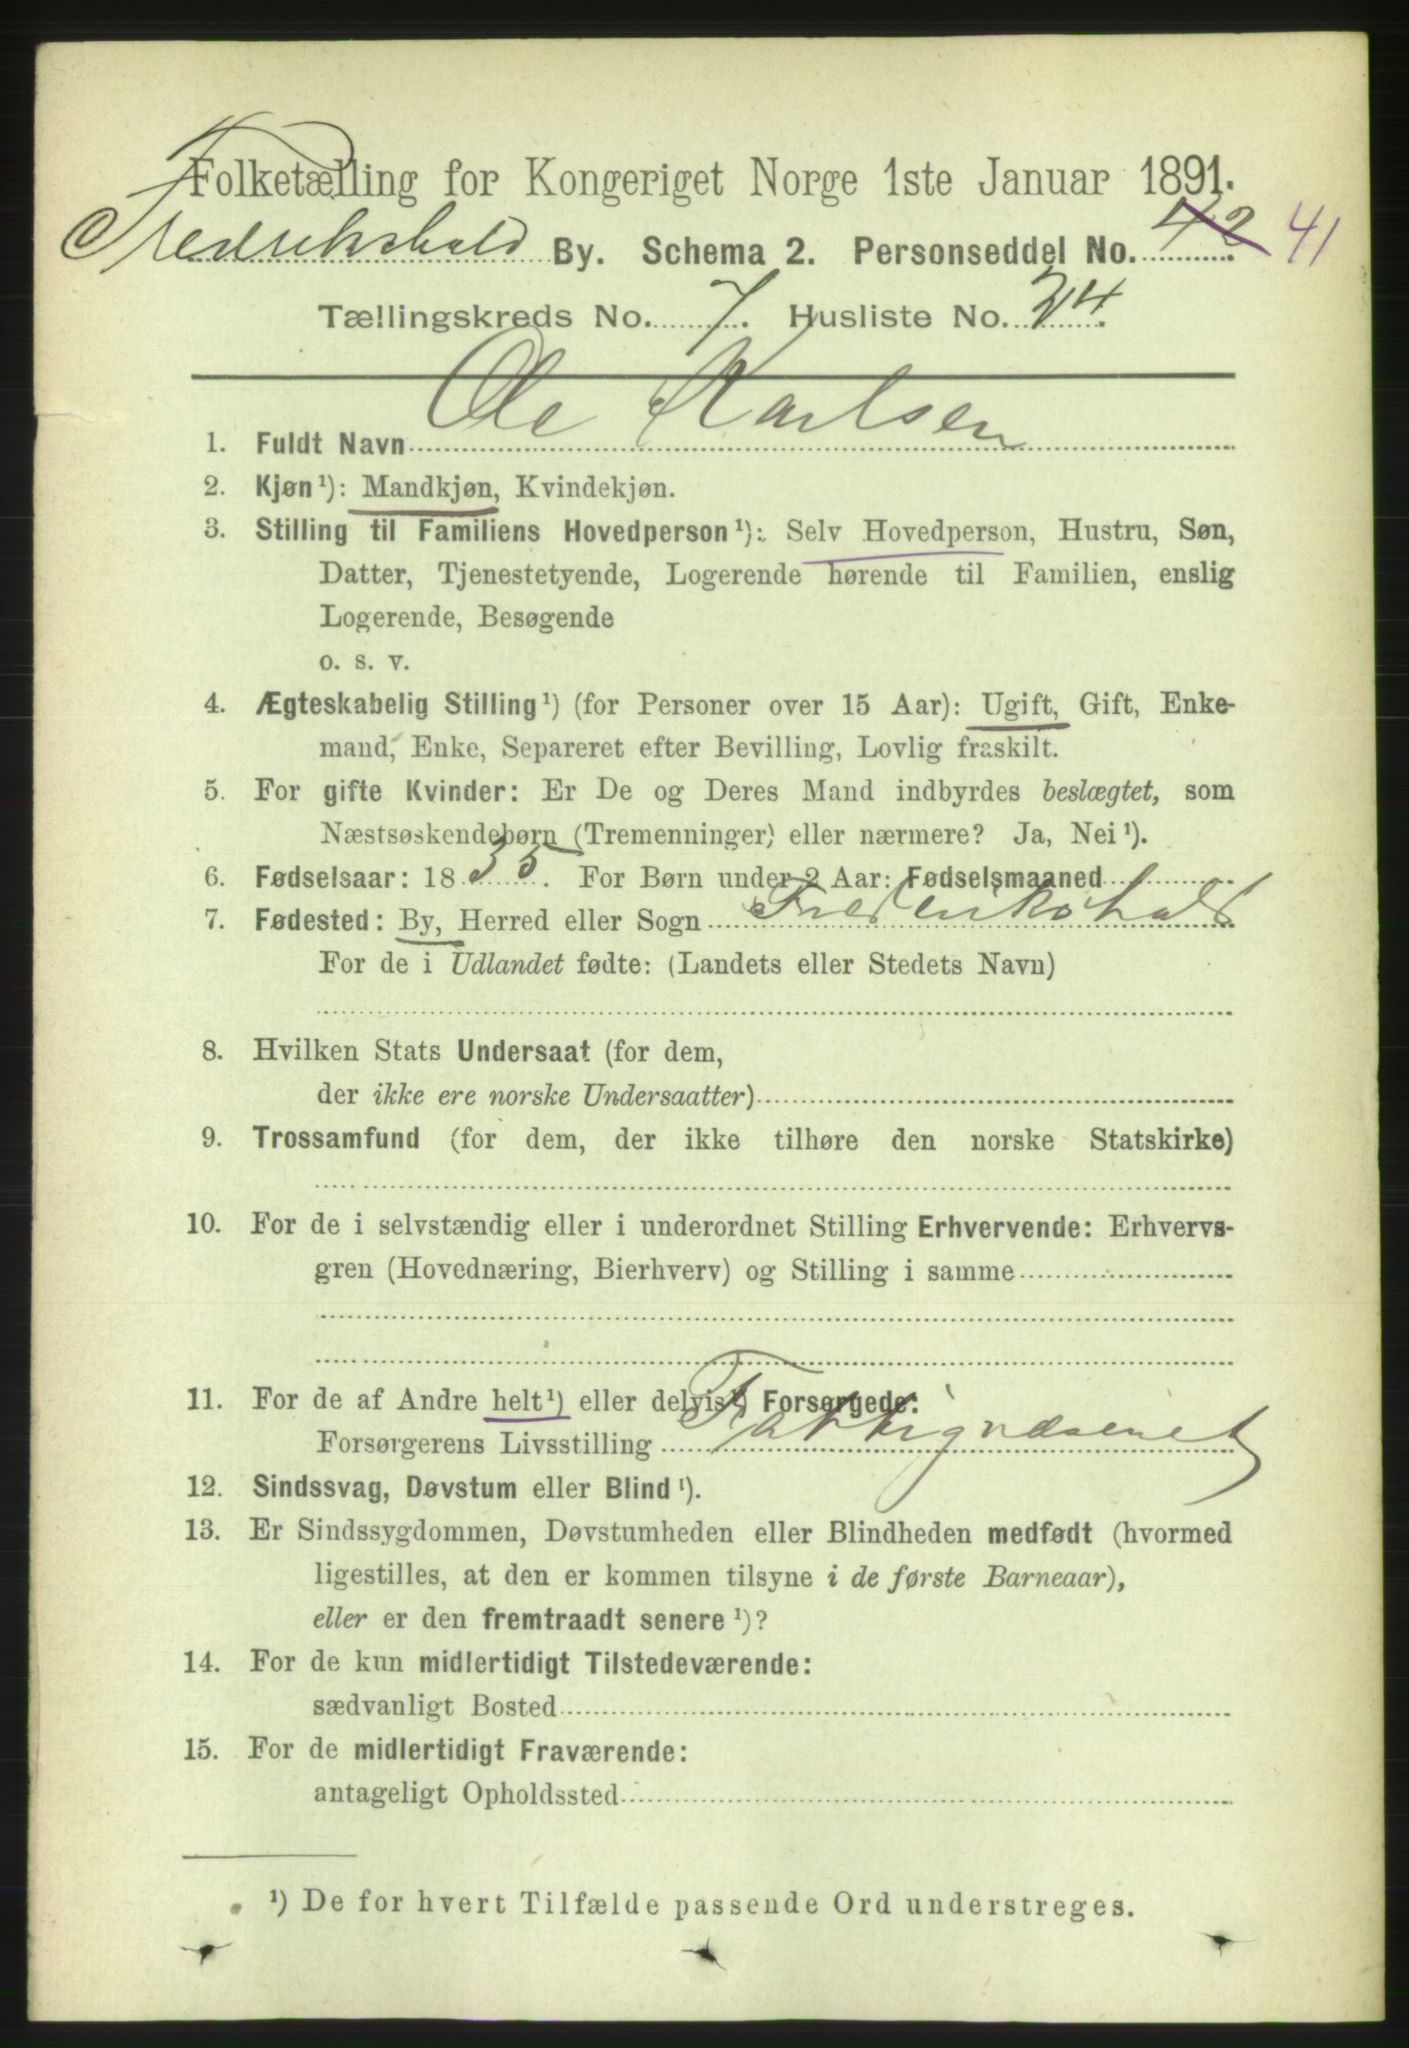 Folketælling for Kongeriget Norge 1ste Januar 1891.
Fredrikshald By. Schema 2. Personseddel No. 42 41
Tællingskreds No. 7. Husliste No. 24.
Ole Karlsen
1. Fuldt Navn
2. Kjøn¹): Mandkjøn, Kvindekjøn.
3. Stilling til Familiens Hovedperson¹): Selv Hovedperson, Hustru, Søn,
Datter, Tjenestetyende, Logerende hørende til Familien, enslig
Logerende, Besøgende
o. s. v.
4. Ægteskabelig Stilling¹) (for Personer over 15 Aar): Ugift, Gift, Enke-
mand, Enke, Separeret efter Bevilling, Lovlig fraskilt.
5. For gifte Kvinder: Er De og Deres Mand indbyrdes beslægtet, som
Næstsøskendebørn (Tremenninger) eller nærmere? Ja, Nei¹).
6. Fødselsaar: 1835. For Børn under 2 Aar: Fødselsmaaned
7. Fødested: By, Herred eller Sogn Frederikshald
For de i Udlandet fødte: (Landets eller Stedets Navn)
8. Hvilken Stats Undersaat (for dem,
der ikke ere norske Undersaatter)
9. Trossamfund (for dem, der ikke tilhøre den norske Statskirke)
10. For de i selvstændig eller i underordnet Stilling Erhvervende: Erhvervs-
gren (Hovednæring, Bierhverv) og Stilling i samme
11. For de af Andre helt¹) eller delvis¹) Forsørgede:
Forsørgerens Livsstilling Fattigvæsenet
12. Sindssvag, Døvstum eller Blind¹).
13. Er Sindssygdommen, Døvstumheden eller Blindheden medfødt (hvormed
ligestilles, at den er kommen tilsyne i de første Barneaar),
eller er den fremtraadt senere¹)?
14. For de kun midlertidigt Tilstedeværende:
sædvanligt Bosted
15. For de midlertidigt Fraværende:
antageligt Opholdssted
¹) De for hvert Tilfælde passende Ord understreges.